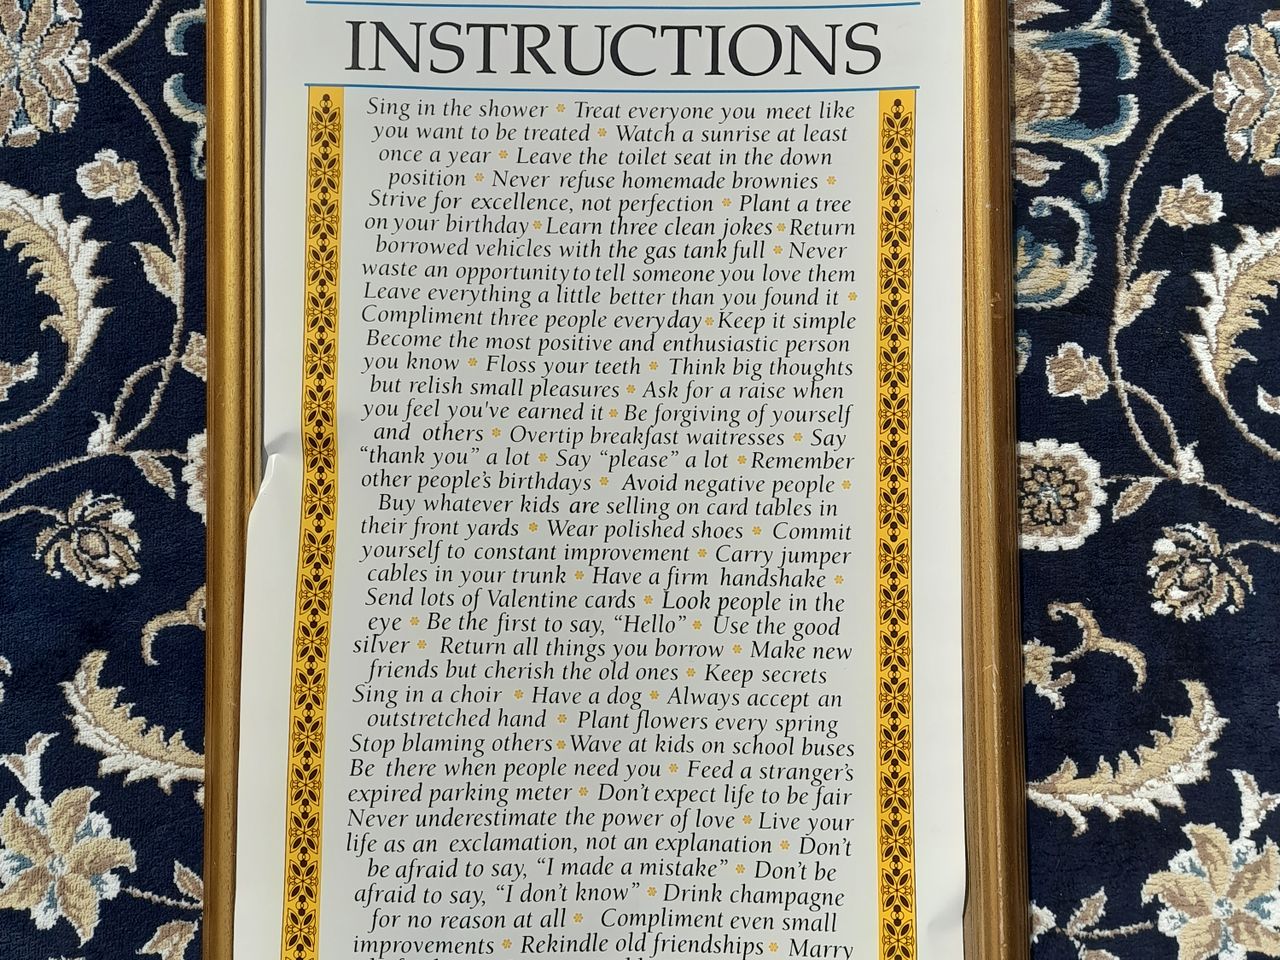 INSTRUCTIONS
Sing in the shower * Treat everyone you meet like
you want to be treated * Watch a sunrise at least
once a year * Leave the toilet seat in the down
position * Never refuse homemade brownies *
Strive for excellence, not perfection * Plant a tree
on your birthday * Learn three clean jokes * Return
borrowed vehicles with the gas tank full * Never
waste an opportunity to tell someone you love them
Leave everything a little better than you found it *
Compliment three people everyday * Keep it simple
Become the most positive and enthusiastic person
you know * Floss your teeth * Think big thoughts
but relish small pleasures * Ask for a raise when
you feel you've earned it * Be forgiving of yourself
and others * Overtip breakfast waitresses * Say
“thank you” a lot * Say “please” a lot * Remember
other people's birthdays * Avoid negative people *
Buy whatever kids are selling on card tables in
their front yards * Wear polished shoes * Commit
yourself to constant improvement * Carry jumper
cables in your trunk * Have a firm handshake *
Send lots of Valentine cards * Look people in the
eye * Be the first to say, “Hello” * Use the good
silver * Return all things you borrow * Make new
friends but cherish the old ones * Keep secrets
Sing in a choir * Have a dog * Always accept an
outstretched hand * Plant flowers every spring
Stop blaming others * Wave at kids on school buses
Be there when people need you * Feed a stranger's
expired parking meter * Don't expect life to be fair
Never underestimate the power of love * Live your
life as an exclamation, not an explanation * Don't
be afraid to say, “I made a mistake” * Don't be
afraid to say, “I don't know” * Drink champagne
for no reason at all * Compliment even small
improvements * Rekindle old friendships * Marry